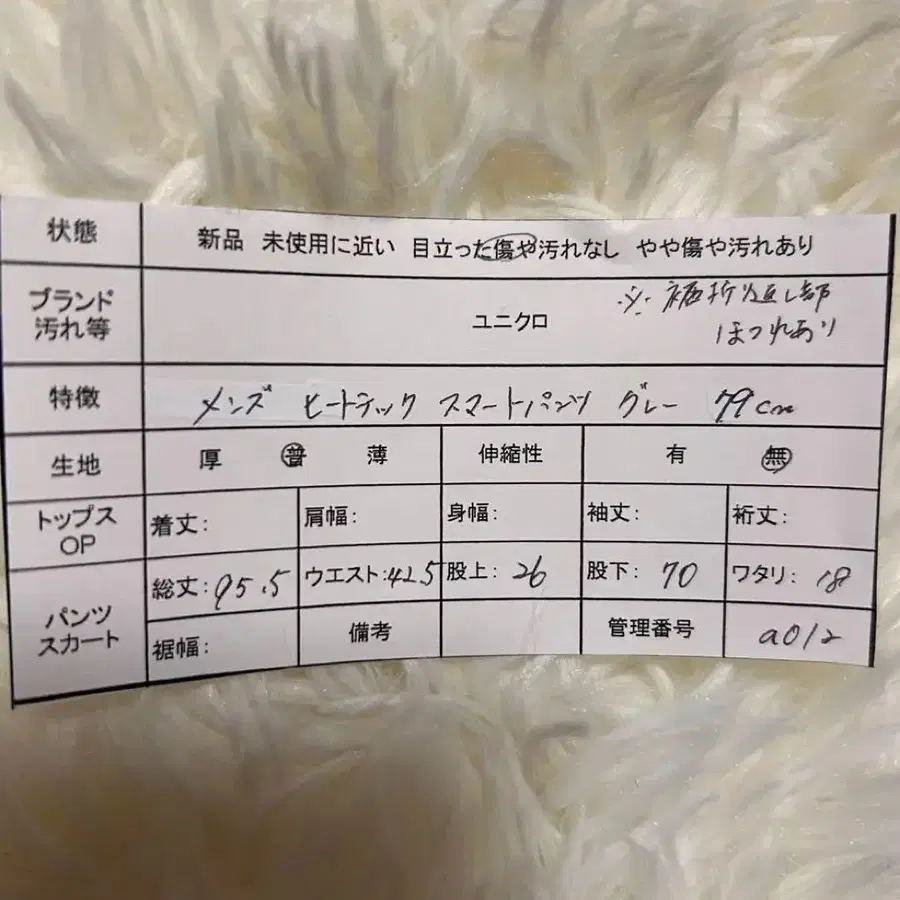 状態 新品 未使用に近い 目立った傷や汚れなし やや傷や汚れあり
ブランド
汚れ等 ユニクロ ※ 裾折り返し部
ほつれあり
特徴 メンズ ヒートテック スマートパンツ グレー 79cm
生地 厚 普 薄 伸縮性 有 無
トップス
OP 着丈: 肩幅: 身幅: 袖丈: 裄丈:
パンツ
スカート 総丈:95.5 ウエスト:42.5 股上:26 股下:70 ワタリ:18
裾幅: 備考 管理番号 a012